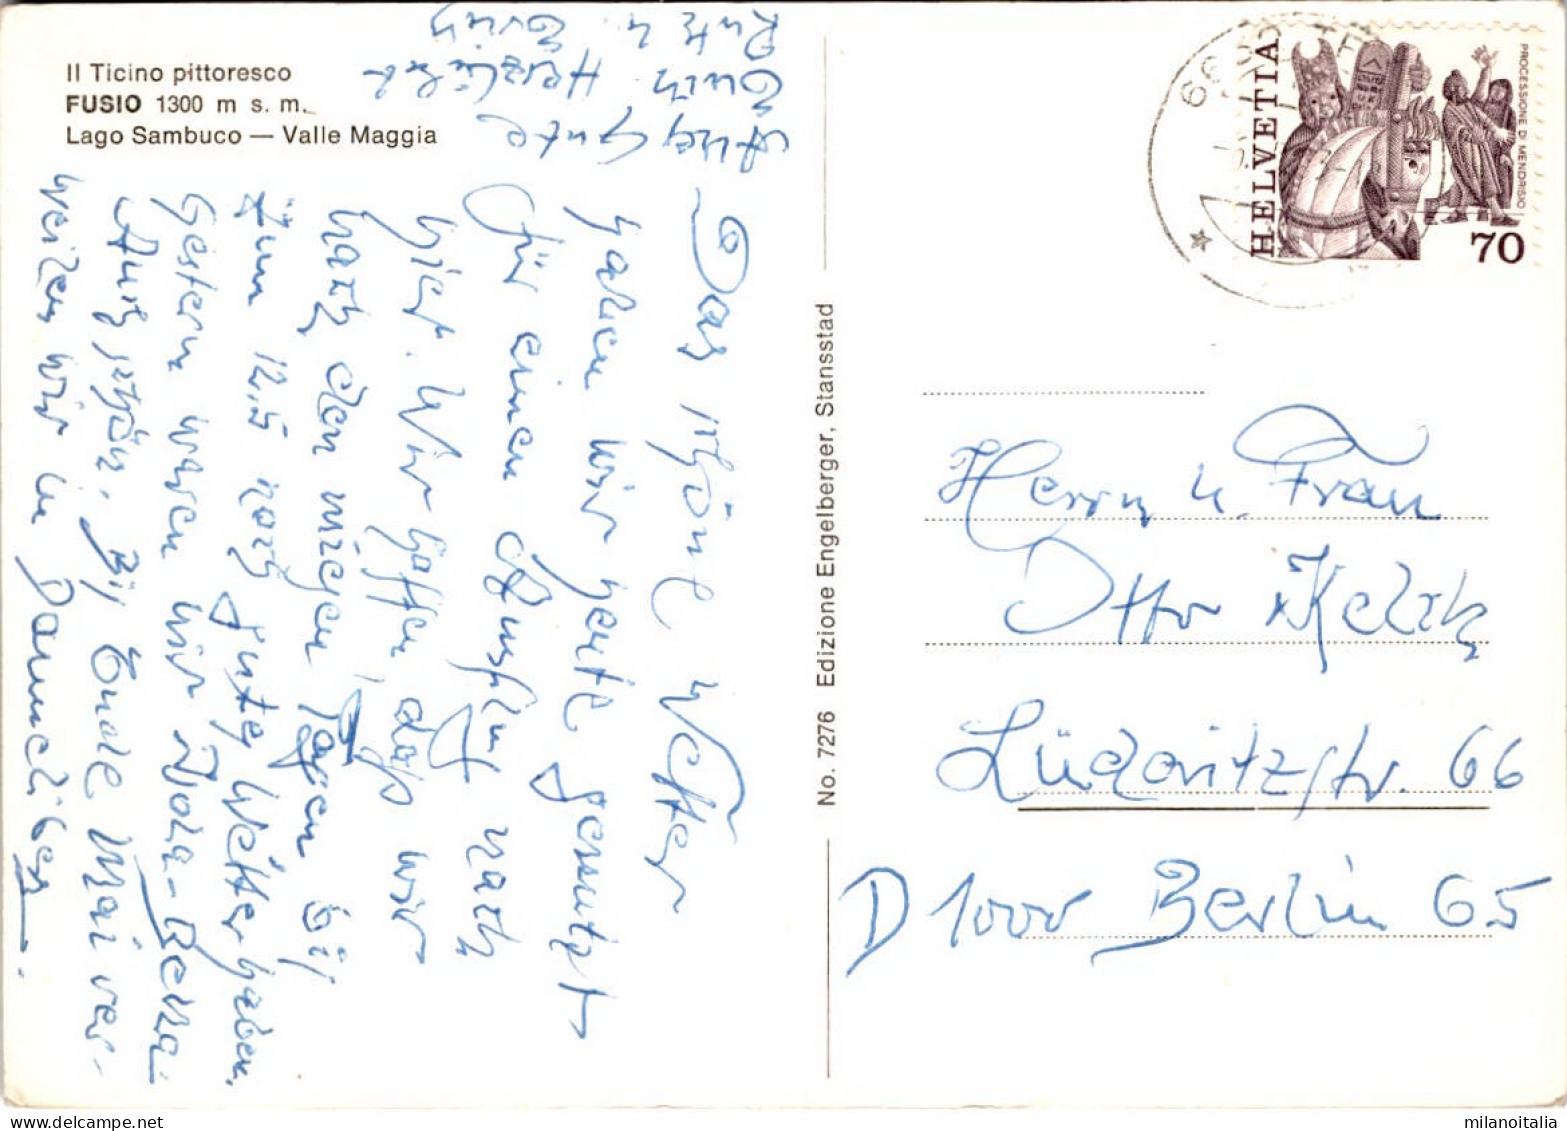 Il Ticino pittoresco
FUSIO 1300 m s. m.
Lago Sambuco — Valle Maggia
Das schöne Wetter
haben wir heute genutzt
für einen Ausflug nach
hier. Wir hoffen, dass wir
nach den nigen Tagen bis
zum 12.5 noch gutes Wetter haben.
Gestern waren wir
Auch schön. Bis Ende Mai ver-
weilen wir in
Alles Gute
Euch Herzlichst
Ruth u. Erich
No. 7276 Edizione Engelberger, Stansstad
HELVETIA
PROCESSIONE DI MENDRISIO
70
Herrn u. Frau
Otto Kelch
Lüderitzstr. 66
D 1000 Berlin 65
milanoitalia